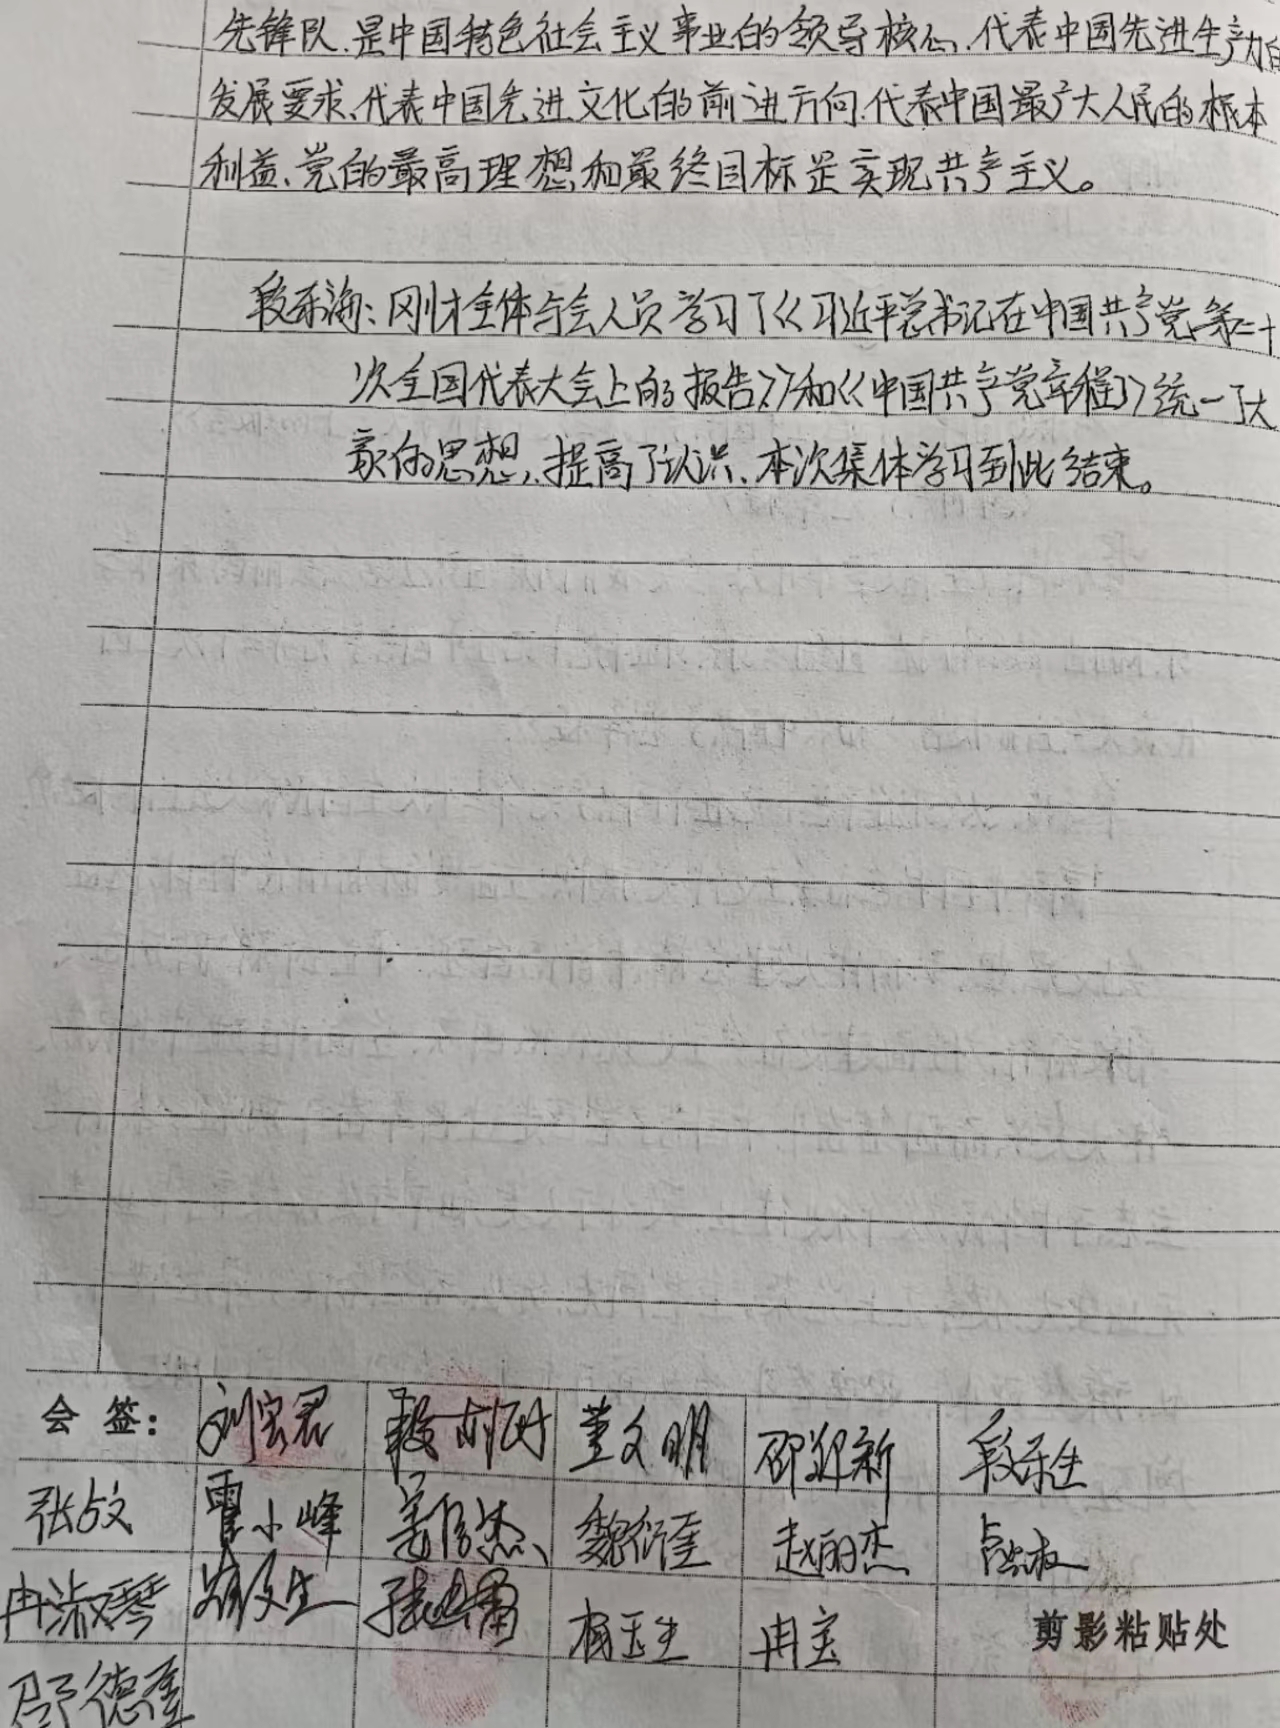 先锋队、是中国特色社会主义事业的领导核心、代表中国先进生产力的
发展要求、代表中国先进文化的前进方向、代表中国最广大人民的根本
利益、党的最高理想和最终目标是实现共产主义。
段乐海：刚才全体与会人员学习了《习近平总书记在中国共产党第二十
次全国代表大会上的报告》和《中国共产党章程》统一了大
家的思想、提高了认识、本次集体学习到此结束。
会签：
刘宝君 董文明 邵郑新 段乐生
张占文 霍小峰 魏衍奎 赵丽杰
冉淑琴 杨玉生 冉宝 剪影粘贴处
邵德奎